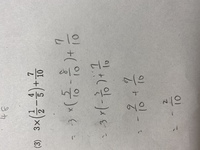 (3) 3×(1/2−4/5)+7/10
= 3×(5/10−8/10)+7/10
= 3×(−3/10)+7/10
= −9/10+7/10
= −2/10